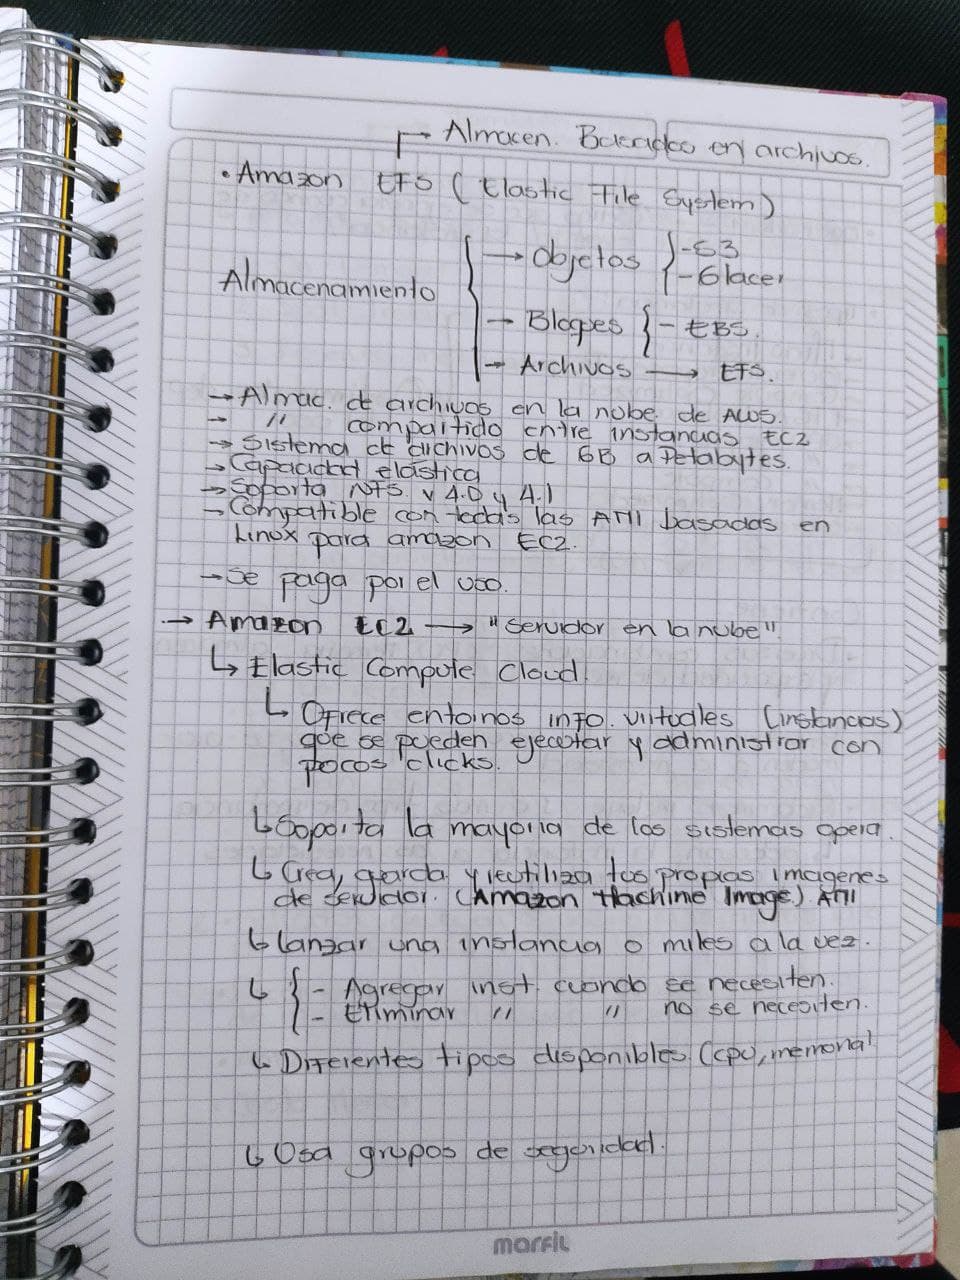 ↱ Almacen. Basados en archivos.
• Amazon EFS (Elastic File System)
Almacenamiento
→ Objetos } - S3
- Glacer
→ Bloques { - EBS.
→ Archivos → EFS.
→ Almac. de archivos en la nube de AWS.
→ // compartido entre instancias EC2
→ Sistema de archivos de GB a Petabytes.
→ Capacidad elástica
→ Soporta NFS v 4.0 y 4.1
→ Compatible con todas las AMI basadas en
Linux para amazon EC2.
→ Se paga por el uso.
→ Amazon EC2 → "Servidor en la nube"
↳ Elastic Compute Cloud.
↳ Ofrece entornos info. virtuales (instancias)
que se pueden ejecutar y administrar con
pocos clicks.
↳ Soporta la mayoria de los sistemas opera.
↳ Crea, guarda y reutiliza tus propias imagenes
de servidor. (Amazon Machine Image) AMI
↳ Lanzar una instancia o miles a la vez.
↳ { - Agregar inst. cuando se necesiten.
- Eliminar // // no se necesiten.
↳ Diferentes tipos disponibles (cpu, memoria)
↳ Usa grupos de seguridad.
marfil